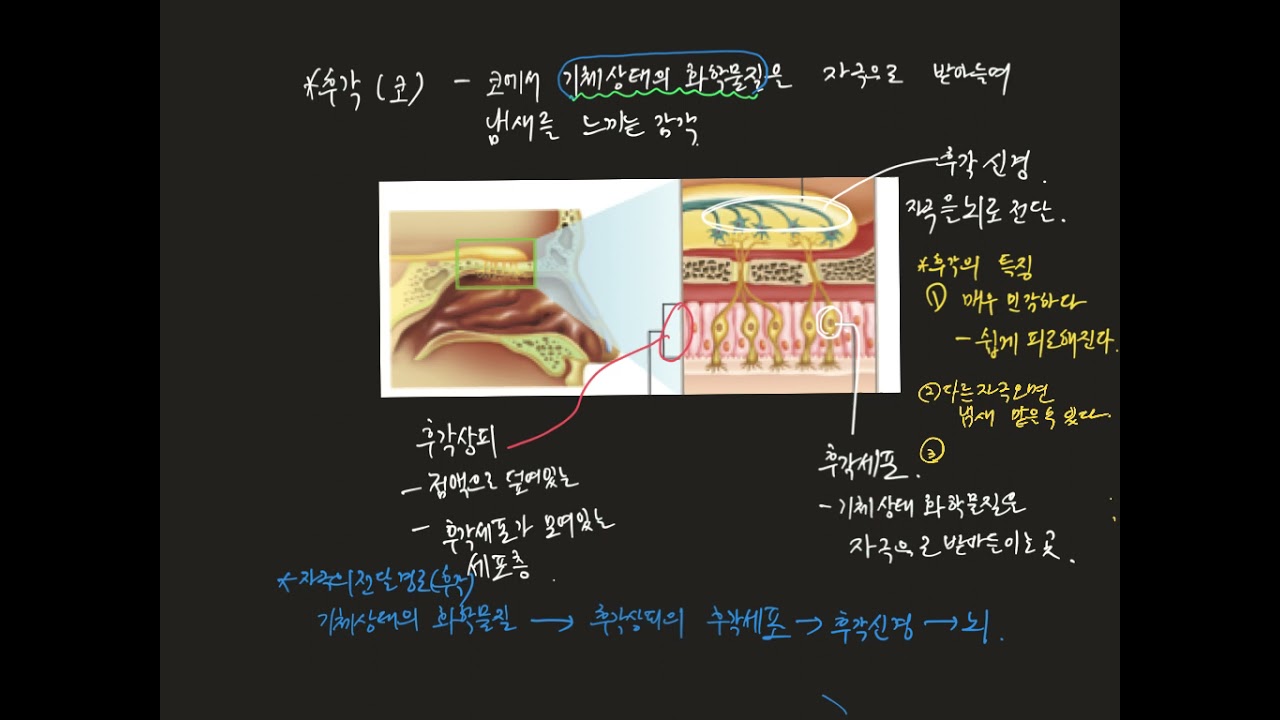 *후각 (코) - 코에서 기체상태의 화학물질을 자극으로 받아들여
냄새를 느끼는 감각
후각 신경.
자극을 뇌로 전달.
*후각의 특징
① 매우 민감하다
- 쉽게 피로해진다.
② 다른자극오면
냄새 맡을 수 있다.
③
후각상피
- 점액으로 덮여있는
- 후각세포가 모여있는
세포층.
후각세포.
- 기체상태 화학물질을
자극으로 받아들이는 곳.
*자극의 전달 경로(후각)
기체상태의 화학물질 → 후각상피의 후각세포 → 후각신경 → 뇌.